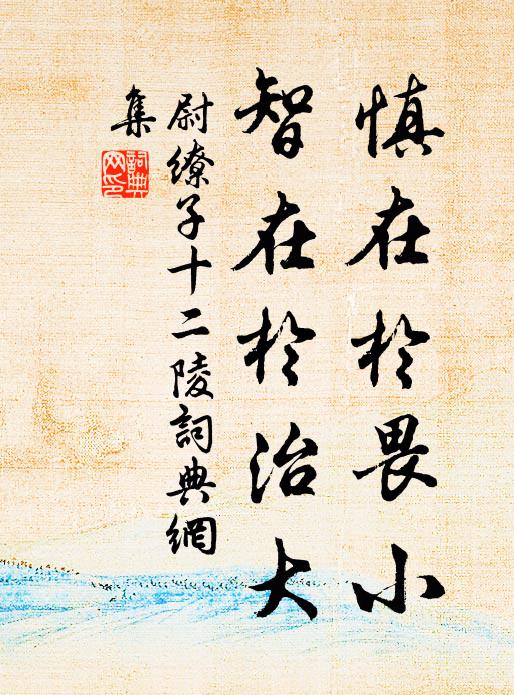 慎在於畏小
智在於治大
尉繚子十二陵詞典網
集
詞典
网印